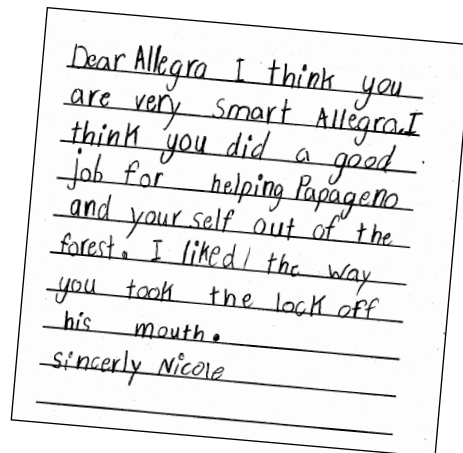 Dear Allegra I think you
are very smart Allegra.I
think you did a good
job for helping Papageno
and your self out of the
forest. I liked the way
you took the lock off
his mouth.
sincerly Nicole